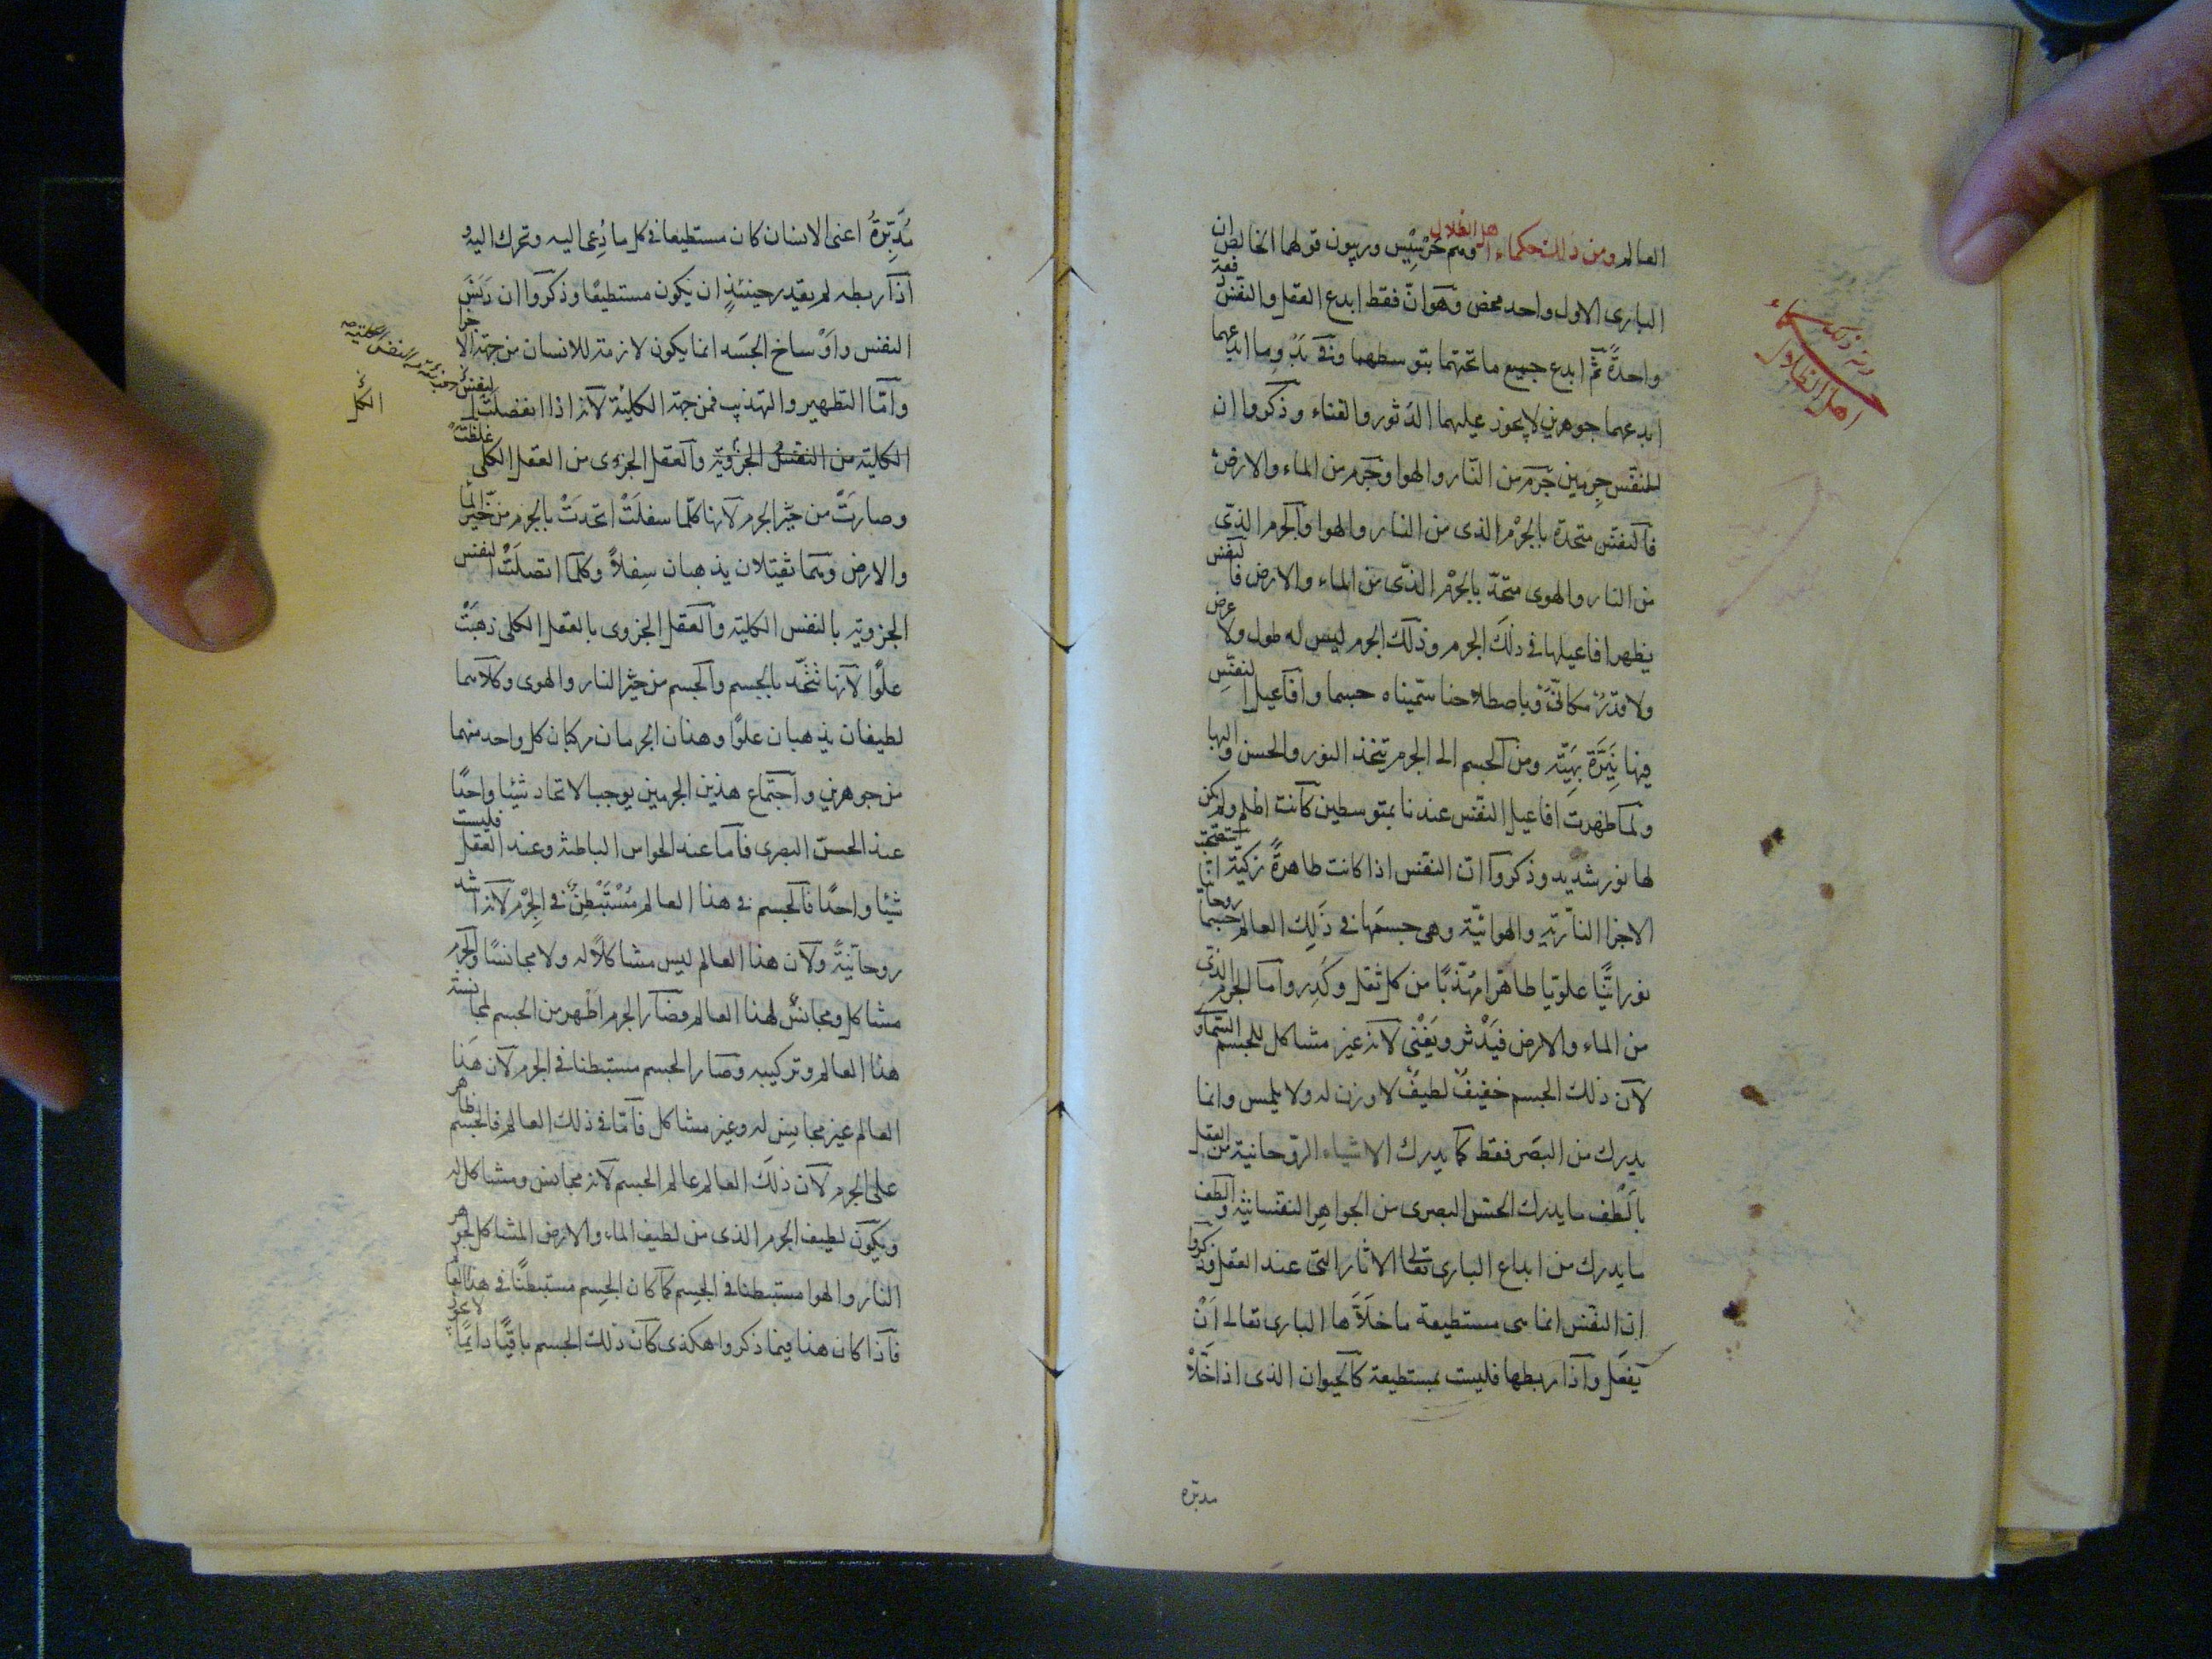 العالم ومن ذلك حكماء اهل المظال وهم خرسيس وزينون قولهما الخالص ان
البارى الاول واحد محض وهو ان فقط ابدع العقل والنفس دفعة
واحدةً ثم ابدع جميع ما تحتهما بتوسطهما وفى بدو ما ابدعهما
ابدعهما جوهرين لا يجوز عليهما الدثور والفناء وذكروا ان
للنفس جرمين جرم من النار والهوا وجرم من الماء والارض
فالنفس متحدة بالجرم الذى من النار والهوا والجرم الذى
من النار والهوى متحد بالجرم الذى من الماء والارض فالنفس
يظهر افاعيلها فى ذلك الجرم وذلك الجرم ليس له طول ولا عرض
ولا قدر مكانى وباصطلاحنا سميناه جسما وافاعيل النفس
فيها نيرة بهية ومن الجسم الى الجرم تتخذ النور والحسن والبها
ولما ظهرت افاعيل النفس عندنا بمتوسطين كانت اظلم ولم يكن
لها نور شديد وذكروا ان النفس اذا كانت طاهرةً زكية استصحبت
الاجزا النارية والهوائية وهى جسمها فى ذلك العالم جسما روحانيا
نورانيًا علويا طاهرا مهذبًا من كل ثقل وكدر واما الجرم الذى
من الماء والارض فيدثر ويفنى لانه غير مشاكل للجسم السماوى
لان ذلك الجسم خفيف لطيف لا وزن له ولا يلمس وانما
يدرك من البصر فقط كما يدرك الاشياء الروحانية من العقل
بالطف ما يدرك الحس البصرى من الجواهر النفسانية والطف
ما يدرك من ابداع البارى تعالى الاثار التى عند العقل وذكروا
ان النفس انما هى مستطيعة ما خلاها البارى تعالى ان
يفعل واذا ربطها فليست بمستطيعة كالحيوان الذى اذا خلاه
مدبره
ومن ذلك حكماء
اهل المظال
مُدبِّرهُ اعنى الانسان كان مستطيعا فى كل ما دُعى اليه وتحرك اليه و
اذا ربطه لم يقدر حينئذٍ ان يكون مستطيعًا وذكروا ان دنس
النفس واوساخ الجسد انما يكون لازمة للانسان من جهة الاجزا
واما التطهير والتهذيب فمن جهة الكلية لانه اذا انفصلت النفس
الكلية من النفس الجزوية والعقل الجزوى من العقل الكلى غلظت
وصارت من حيز الجرم لانها كلما سفلت اتحدت بالجرم من حيز الما
والارض وهما ثقيلان يذهبان سفلاً وكلما اتصلت النفس
الجزوية بالنفس الكلية والعقل الجزوى بالعقل الكلى ذهبت
علوًا لانها تتحد بالجسم والجسم من حيز النار والهوى وكلاهما
لطيفان يذهبان علوًا وهذان الجرمان مركبان كل واحد منهما
من جوهرين واجتماع هذين الجرمين يوجب الاتحاد شيئا واحدًا
عند الحس البصرى فاما عند الحواس الباطنة وعند العقل فليست
شيئا واحدًا فالجسم فى هذا العالم مُسْتَبْطِنٌ فى الجرم لانه اشد
روحانيةً ولان هذا العالم ليس مشاكلاً له ولا مجانسًا والجرم
مشاكل ومجانس لهذا العالم فصار الجرم اظهر من الجسم لمجانسة
هذا العالم وتركيبه وصار الجسم مستبطنا فى الجرم لان هذا
العالم غير مجانس له وغير مشاكل فاما فى ذلك العالم فالجسم ظاهر
على الجرم لان ذلك العالم عالم الجسم لانه مجانس ومشاكل له
ويكون لطيف الجرم الذى من لطيف الماء والارض المشاكل لجوهر
النار والهوا مستبطنا فى الجسم كما كان الجسم مستبطنًا فى هذا العا
فاذا كان هذا فيما ذكروا هكذى كان ذلك الجسم باقيًا دائمًا لا يجوز